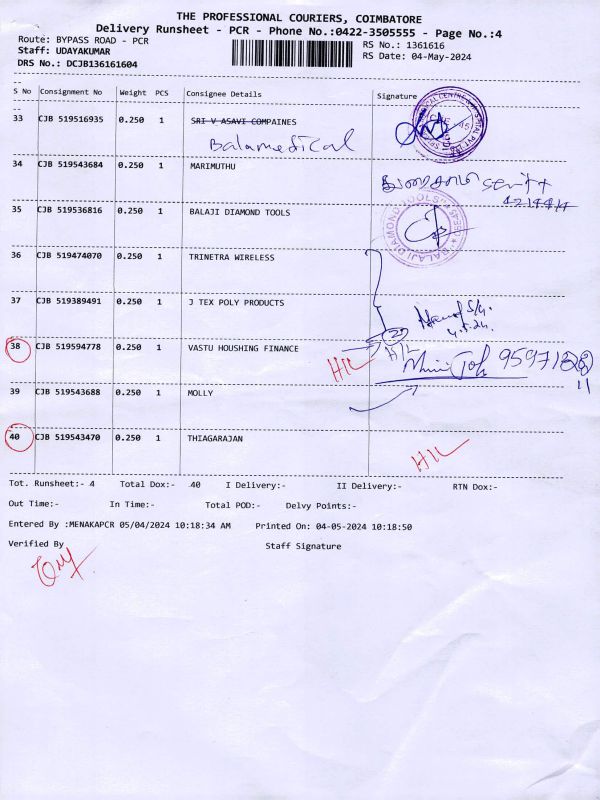 THE PROFESSIONAL COURIERS, COIMBATORE
Delivery Runsheet - PCR - Phone No.:0422-3505555 - Page No.:4
Route: BYPASS ROAD - PCR
RS No.: 1361616
Staff: UDAYAKUMAR
RS Date: 04-May-2024
DRS No.: DCJB136161604
S No Consignment No Weight PCS Consignee Details Signature
33 CJB 519516935 0.250 1 SRI V ASAVI COMPAINES
Balamedical
34 CJB 519543684 0.250 1 MARIMUTHU
35 CJB 519536816 0.250 1 BALAJI DIAMOND TOOLS
BALAJI DIAMOND TOOLS
36 CJB 519474070 0.250 1 TRINETRA WIRELESS
37 CJB 519389491 0.250 1 J TEX POLY PRODUCTS
4.5.24.
38 CJB 519594778 0.250 1 VASTU HOUSHING FINANCE
H/L
H/L
39 CJB 519543688 0.250 1 MOLLY
40 CJB 519543470 0.250 1 THIAGARAJAN
H/L
Tot. Runsheet:- 4 Total Dox:- 40 I Delivery:- II Delivery:- RTN Dox:-
Out Time:- In Time:- Total POD:- Delvy Points:-
Entered By :MENAKAPCR 05/04/2024 10:18:34 AM Printed On: 04-05-2024 10:18:50
Verified By Staff Signature